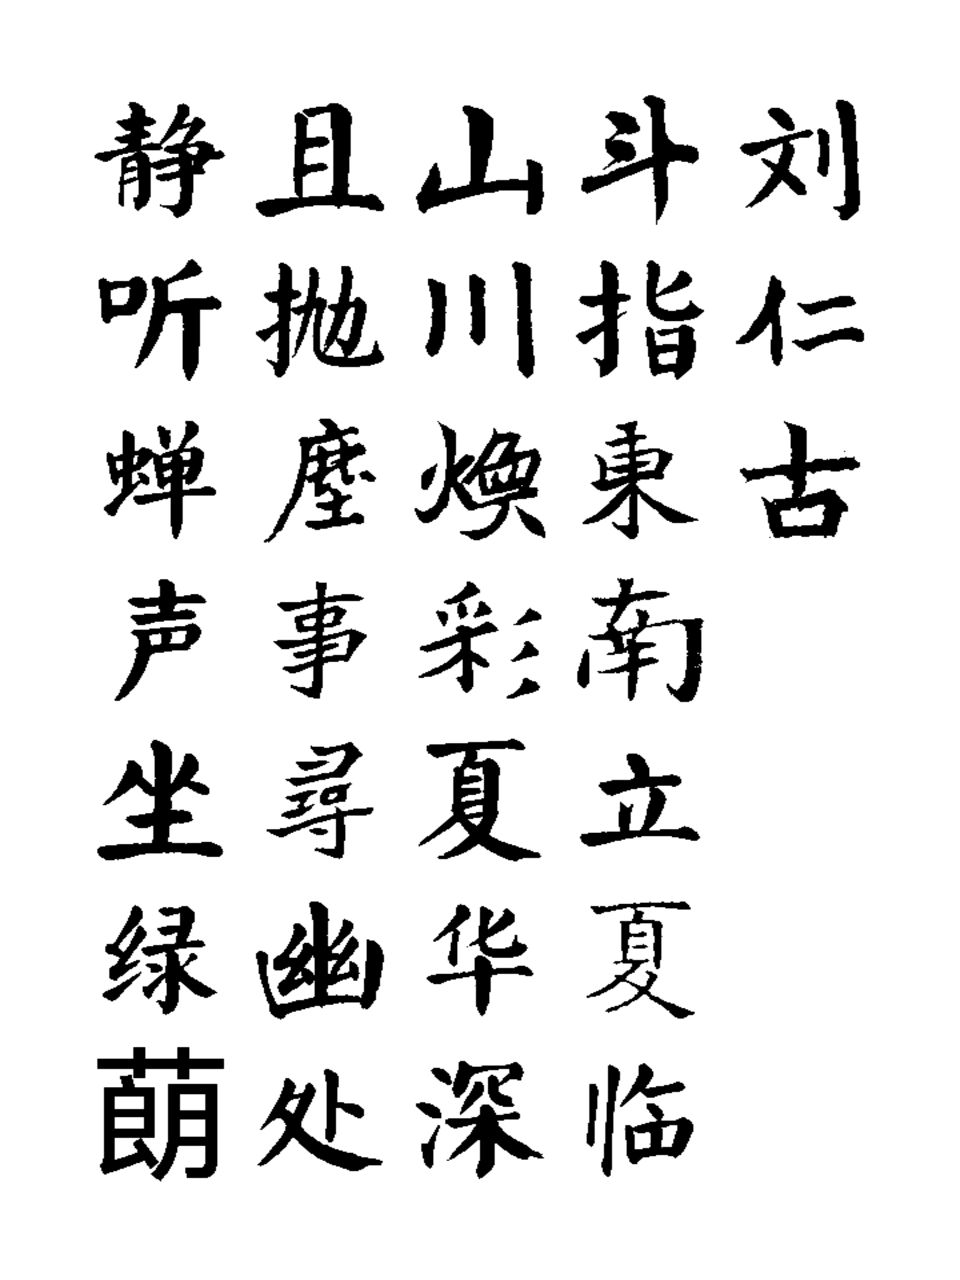 刘仁古
斗指東南立夏临
山川煥彩夏华深
且抛塵事尋幽处
静听蝉声坐绿蓢